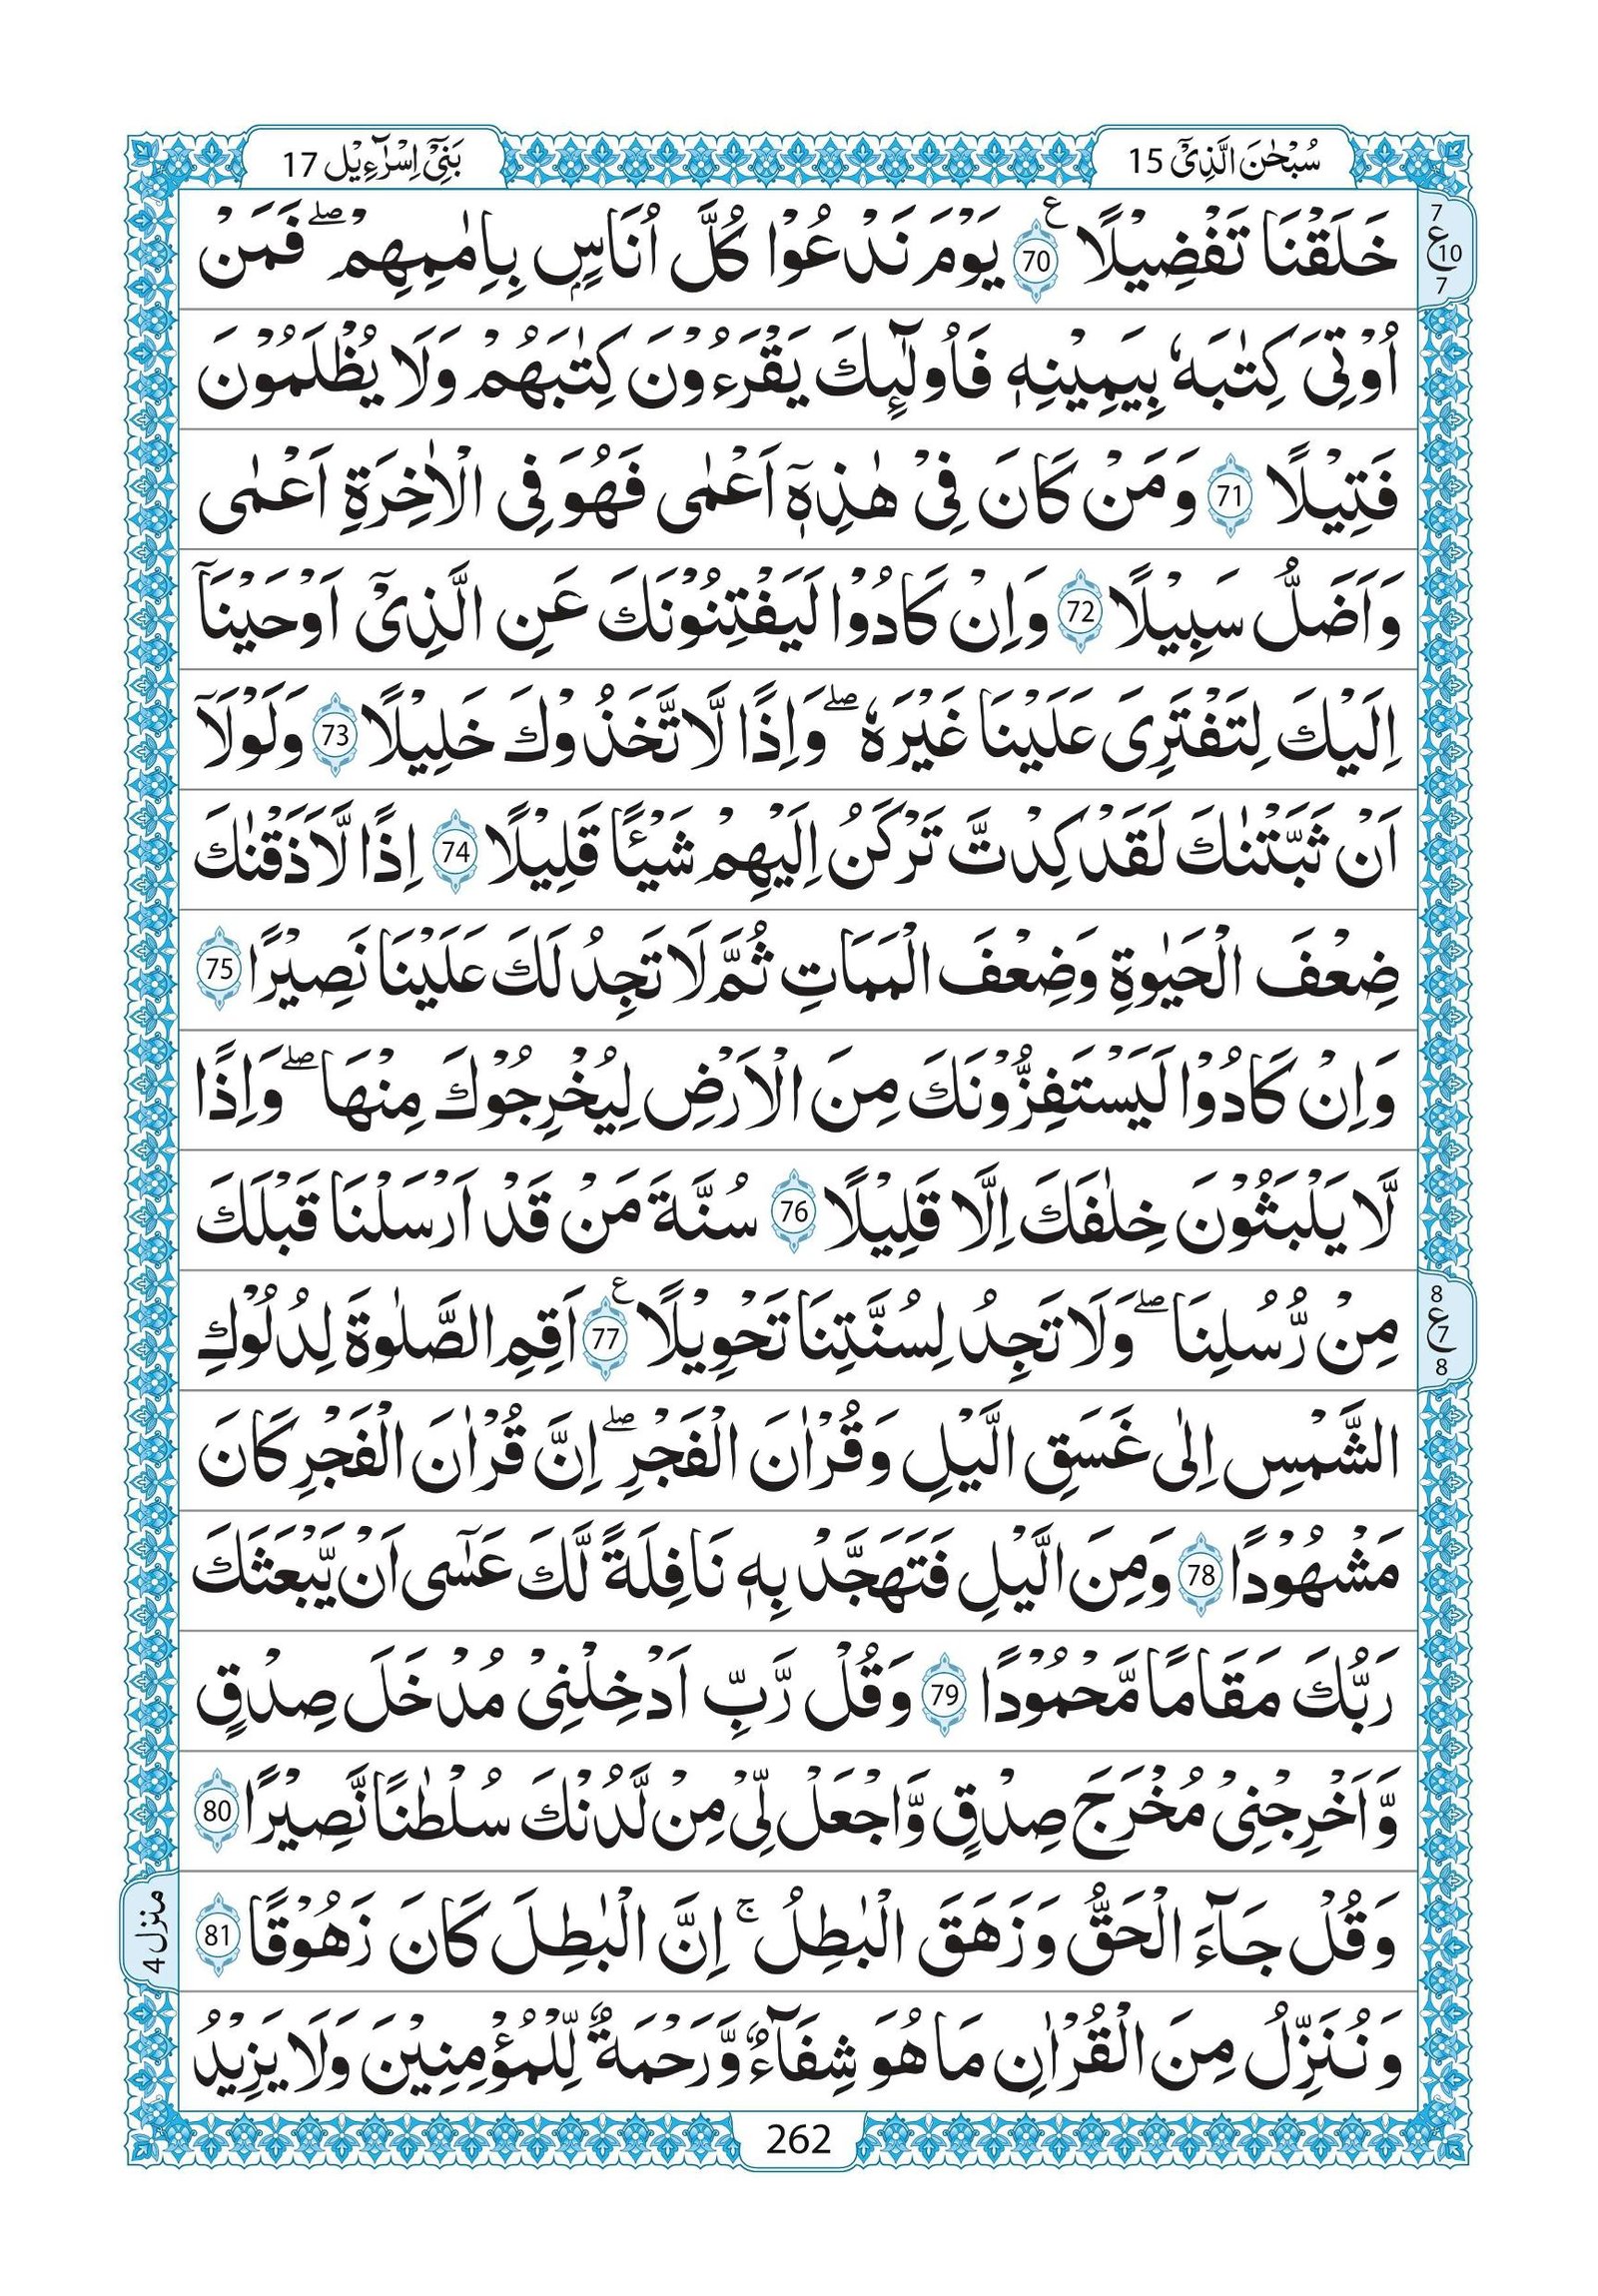 سُبْحٰنَ الَّذِیْۤ 15
بَنِیْۤ اِسْرَآءِیْل 17
7
ع 10
7
خَلَقْنَا تَفْضِیْلًا ۧ 70 یَوْمَ نَدْعُوْا كُلَّ اُنَاسٍۭ بِاِمَامِهِمْ ۖ فَمَنْ
اُوْتِیَ كِتٰبَهٗ بِیَمِیْنِهٖ فَاُولٰٓىِٕكَ یَقْرَءُوْنَ كِتٰبَهُمْ وَلَا یُظْلَمُوْنَ
فَتِیْلًا 71 وَمَنْ كَانَ فِیْ هٰذِهٖۤ اَعْمٰی فَهُوَ فِی الْاٰخِرَةِ اَعْمٰی
وَاَضَلُّ سَبِیْلًا 72 وَاِنْ كَادُوْا لَیَفْتِنُوْنَكَ عَنِ الَّذِیْۤ اَوْحَیْنَاۤ
اِلَیْكَ لِتَفْتَرِیَ عَلَیْنَا غَیْرَهٗ ۖ وَاِذًا لَّاتَّخَذُوْكَ خَلِیْلًا 73 وَلَوْلَاۤ
اَنْ ثَبَّتْنٰكَ لَقَدْ كِدْتَّ تَرْكَنُ اِلَیْهِمْ شَیْـًٔا قَلِیْلًا 74 اِذًا لَّاَذَقْنٰكَ
ضِعْفَ الْحَیٰوةِ وَضِعْفَ الْمَمَاتِ ثُمَّ لَا تَجِدُ لَكَ عَلَیْنَا نَصِیْرًا 75
وَاِنْ كَادُوْا لَیَسْتَفِزُّوْنَكَ مِنَ الْاَرْضِ لِیُخْرِجُوْكَ مِنْهَا ۖ وَاِذًا
لَّا یَلْبَثُوْنَ خِلٰفَكَ اِلَّا قَلِیْلًا 76 سُنَّةَ مَنْ قَدْ اَرْسَلْنَا قَبْلَكَ
مِنْ رُّسُلِنَا ۖ وَلَا تَجِدُ لِسُنَّتِنَا تَحْوِیْلًا ۧ 77 اَقِمِ الصَّلٰوةَ لِدُلُوْكِ
8
ع 7
8
الشَّمْسِ اِلٰی غَسَقِ الَّیْلِ وَقُرْاٰنَ الْفَجْرِ ۖ اِنَّ قُرْاٰنَ الْفَجْرِ كَانَ
مَشْهُوْدًا 78 وَمِنَ الَّیْلِ فَتَهَجَّدْ بِهٖ نَافِلَةً لَّكَ عَسٰۤی اَنْ یَّبْعَثَكَ
رَبُّكَ مَقَامًا مَّحْمُوْدًا 79 وَقُلْ رَّبِّ اَدْخِلْنِیْ مُدْخَلَ صِدْقٍ
وَّاَخْرِجْنِیْ مُخْرَجَ صِدْقٍ وَّاجْعَلْ لِّیْ مِنْ لَّدُنْكَ سُلْطٰنًا نَّصِیْرًا 80
وَقُلْ جَآءَ الْحَقُّ وَزَهَقَ الْبٰطِلُ ۚ اِنَّ الْبٰطِلَ كَانَ زَهُوْقًا 81
وَنُنَزِّلُ مِنَ الْقُرْاٰنِ مَا هُوَ شِفَآءٌ وَّرَحْمَةٌ لِّلْمُؤْمِنِیْنَ وَلَا یَزِیْدُ
منزل 4
262